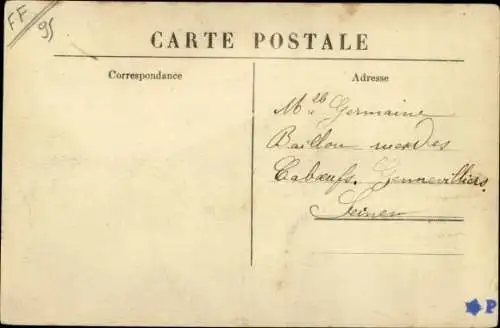 FF
95
CARTE POSTALE
Correspondance
Adresse
Mlle Germaine
Baillon rue des
Cabœufs. Gennevilliers.
Seine
P